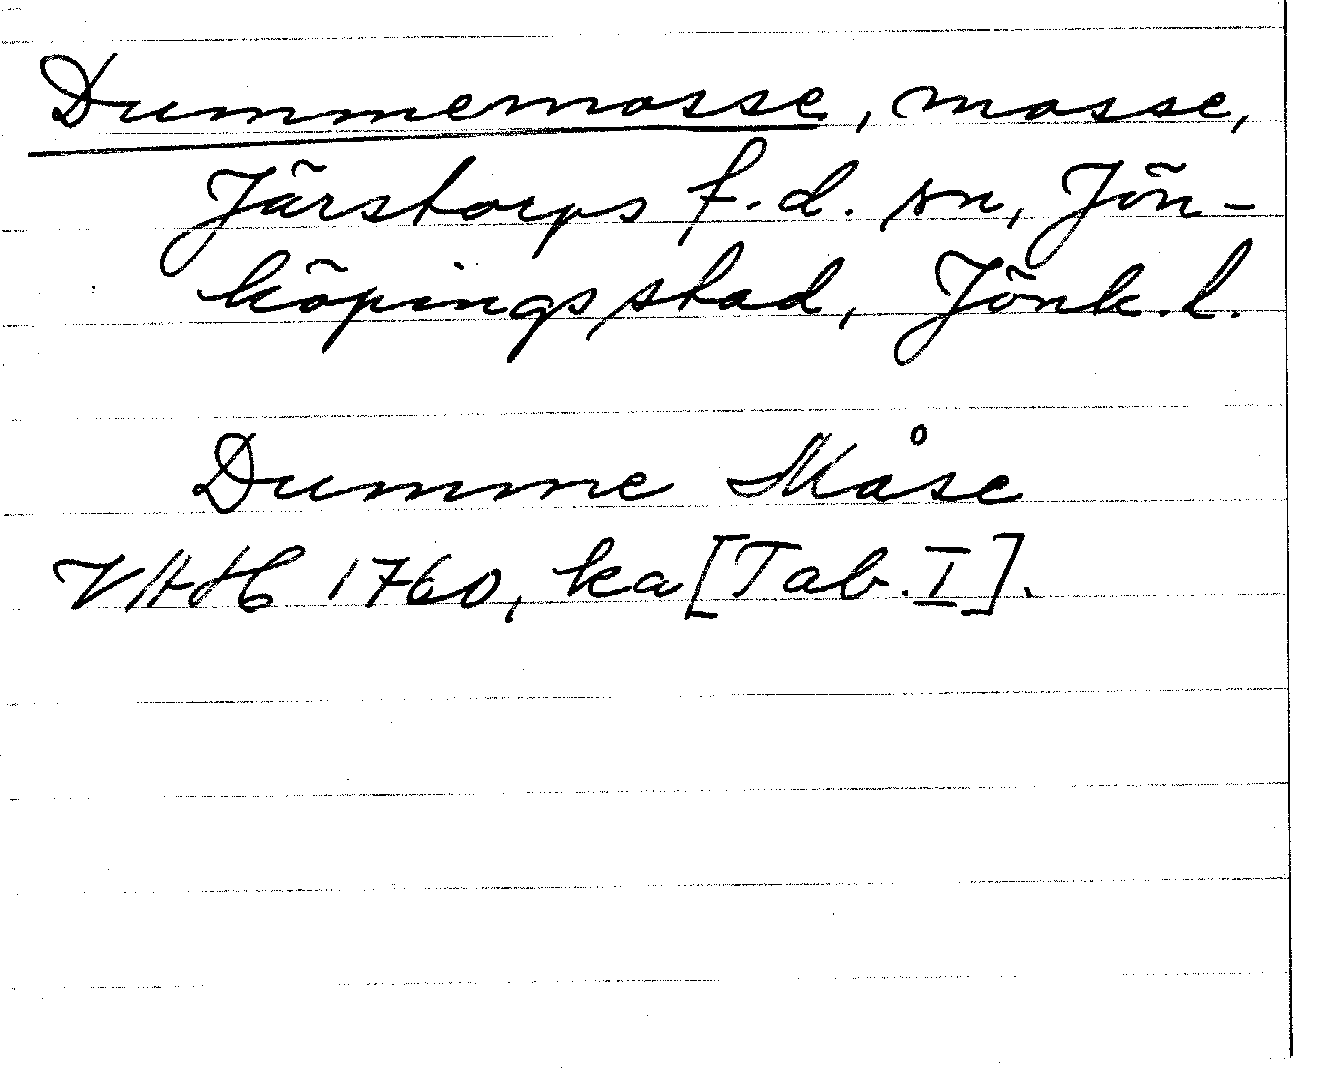 Dummemosse, mosse,
Järstorps f.d. sn, Jön-
köpings stad, Jönk.l.
Dumme Måse
VAH 1760, ka [Tab. I].